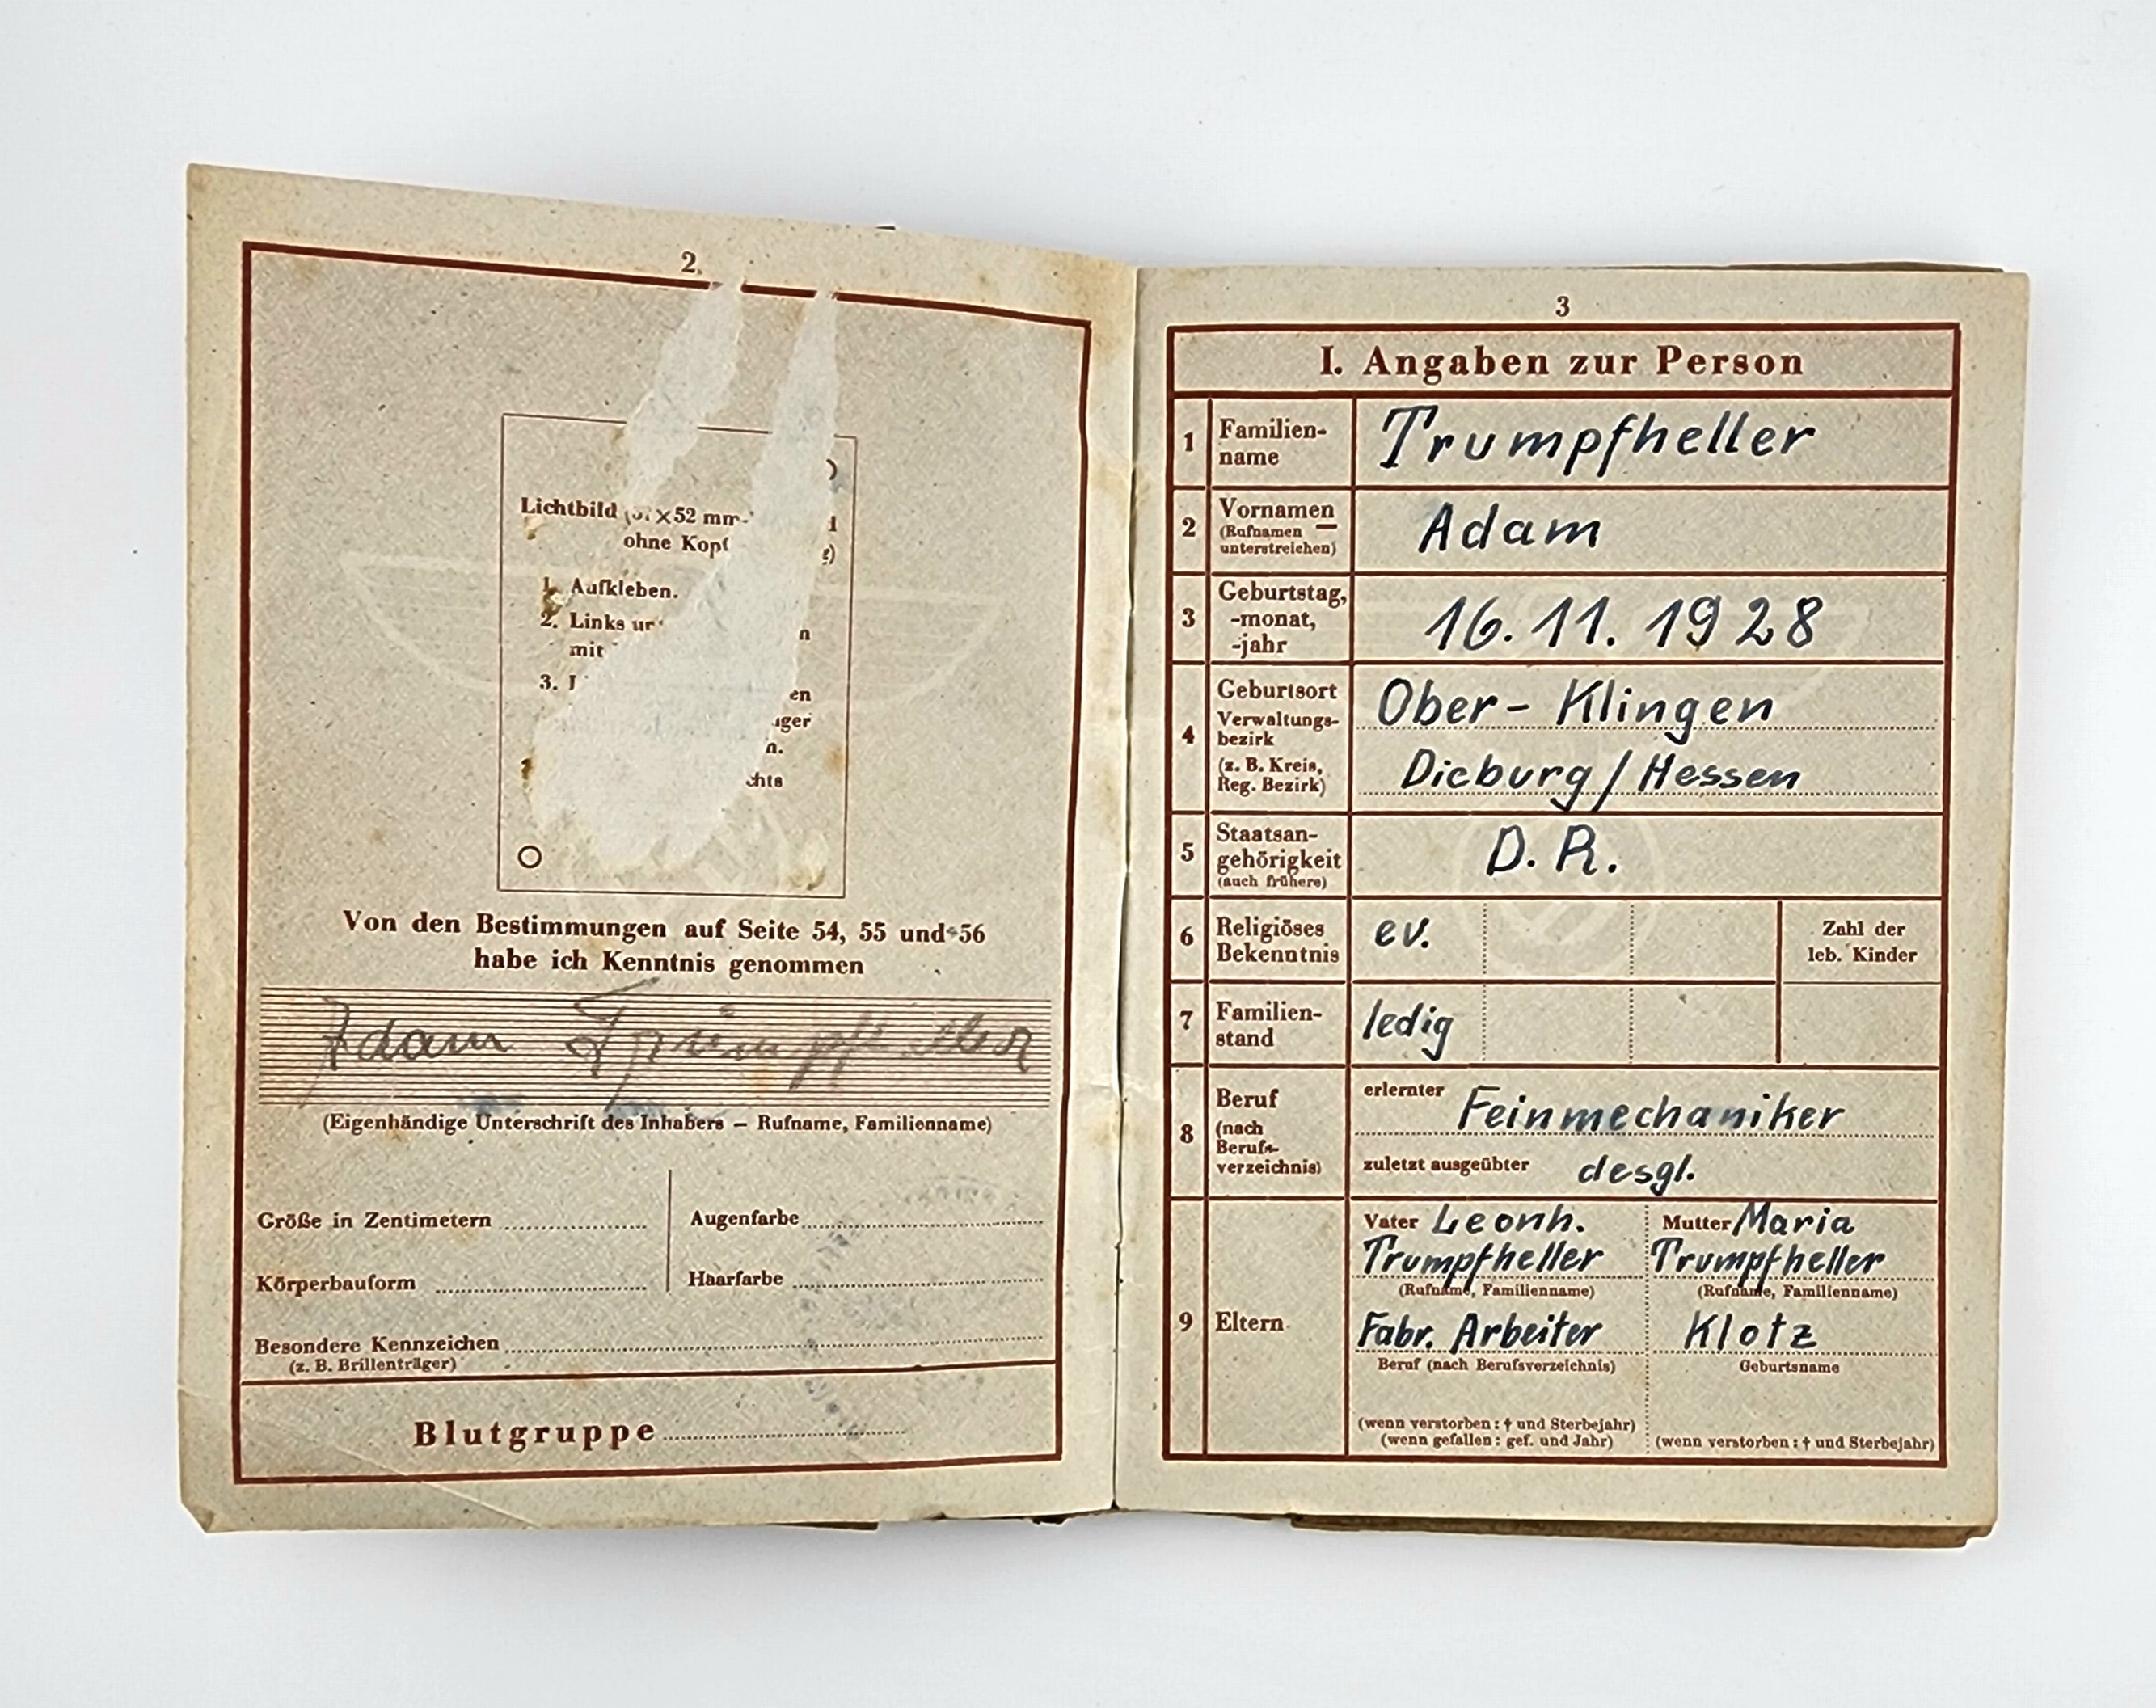 2
Lichtbild × 52 mm-
ohne Kopf
1. Aufkleben.
2. Links
mit
3.
Von den Bestimmungen auf Seite 54, 55 und 56
habe ich Kenntnis genommen
Adam Trumpfheller
(Eigenhändige Unterschrift des Inhabers – Rufname, Familienname)
Größe in Zentimetern
Augenfarbe
Körperbauform
Haarfarbe
Besondere Kennzeichen
(z. B. Brillenträger)
Blutgruppe
3
I. Angaben zur Person
1 Familien- Trumpfheller
name
2 Vornamen Adam
(Rufnamen
unterstreichen)
3 Geburtstag, 16.11.1928
-monat,
-jahr
4 Geburtsort Ober-Klingen
Verwaltungs-
bezirk
(z. B. Kreis, Dieburg/Hessen
Reg. Bezirk)
5 Staatsan- D.R.
gehörigkeit
(auch frühere)
6 Religiöses ev.
Bekenntnis
Zahl der
leb. Kinder
7 Familien- ledig
stand
8 Beruf
(nach
Berufs-
verzeichnis)
erlernter Feinmechaniker
zuletzt ausgeübter desgl.
9 Eltern
Vater Leonh.
Trumpfheller
(Rufname, Familienname)
Fabr. Arbeiter
Beruf (nach Berufsverzeichnis)
(wenn verstorben: † und Sterbejahr)
(wenn gefallen: gef. und Jahr)
Mutter Maria
Trumpfheller
(Rufname, Familienname)
Klotz
Geburtsname
(wenn verstorben: † und Sterbejahr)